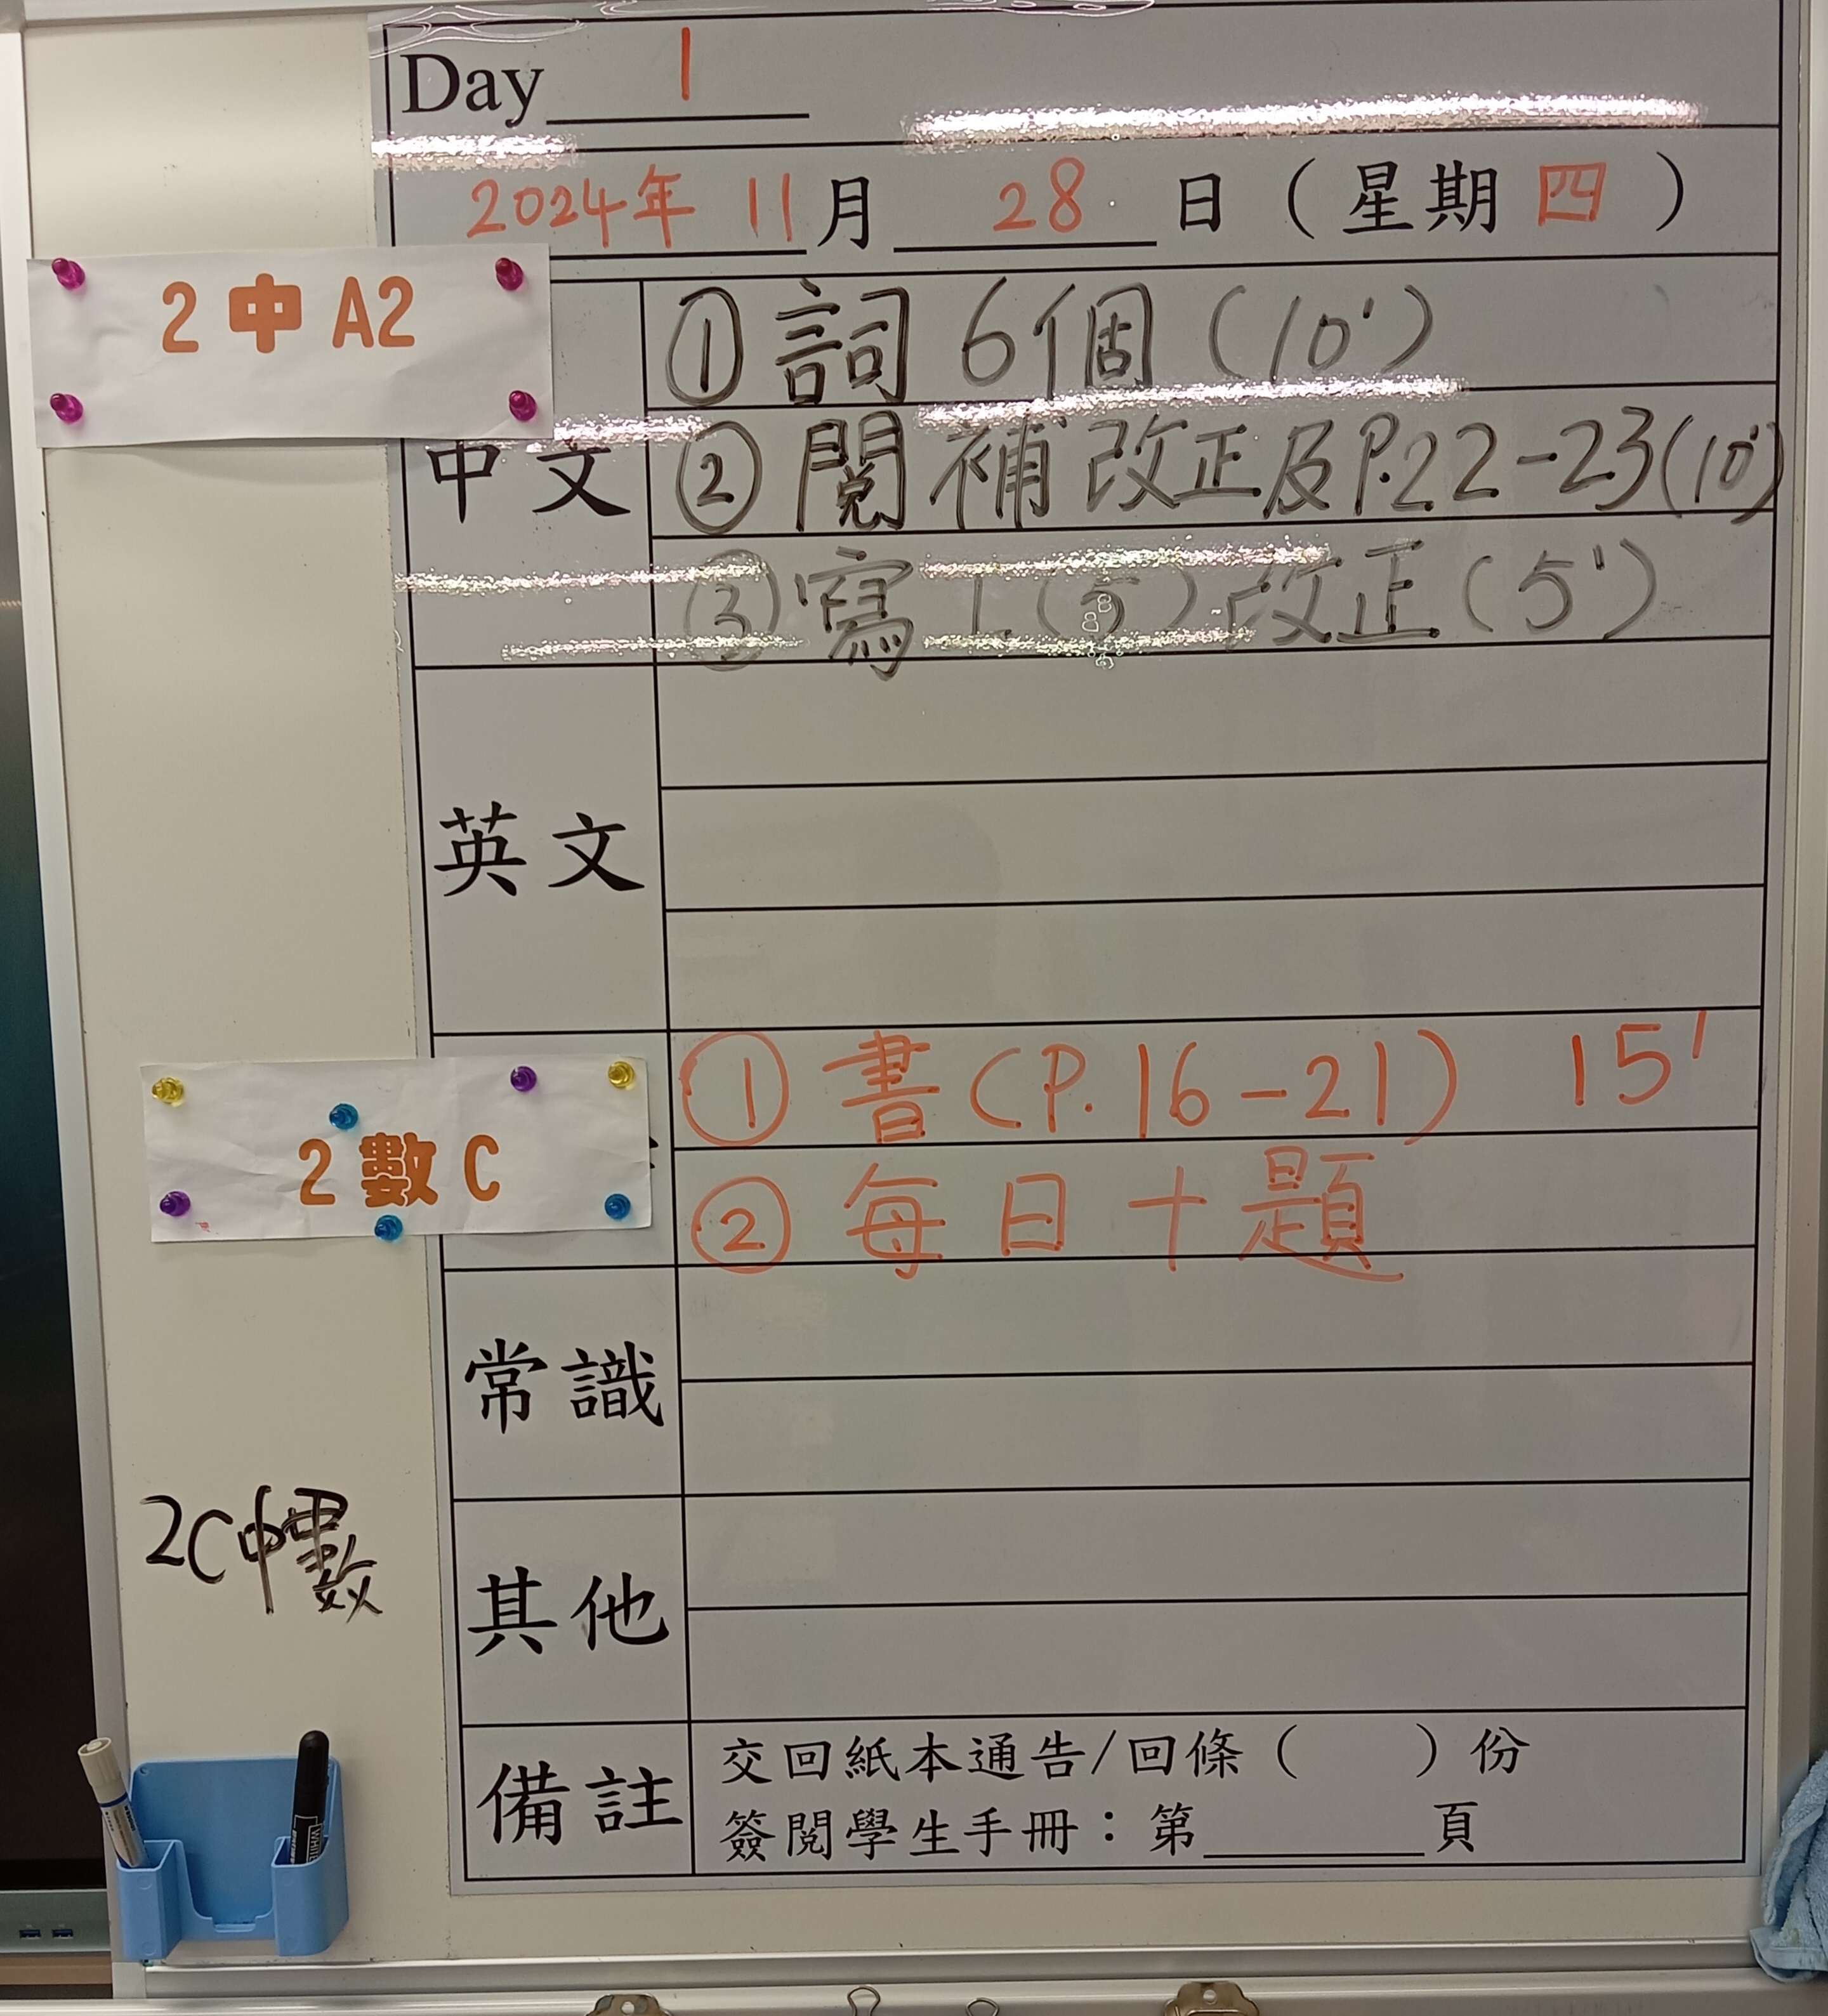 Day 1
2024年 11月 28 日（星期四）
2 中 A2
中文
① 詞 6個 (10')
② 閱補改正及P.22-23(10')
③ 寫 1.(5) 改正 (5')
英文
2 數 C
① 書 (P.16-21) 15'
② 每日十題
常識
2C中數
其他
備註
交回紙本通告/回條（ ）份
簽閱學生手冊：第______頁